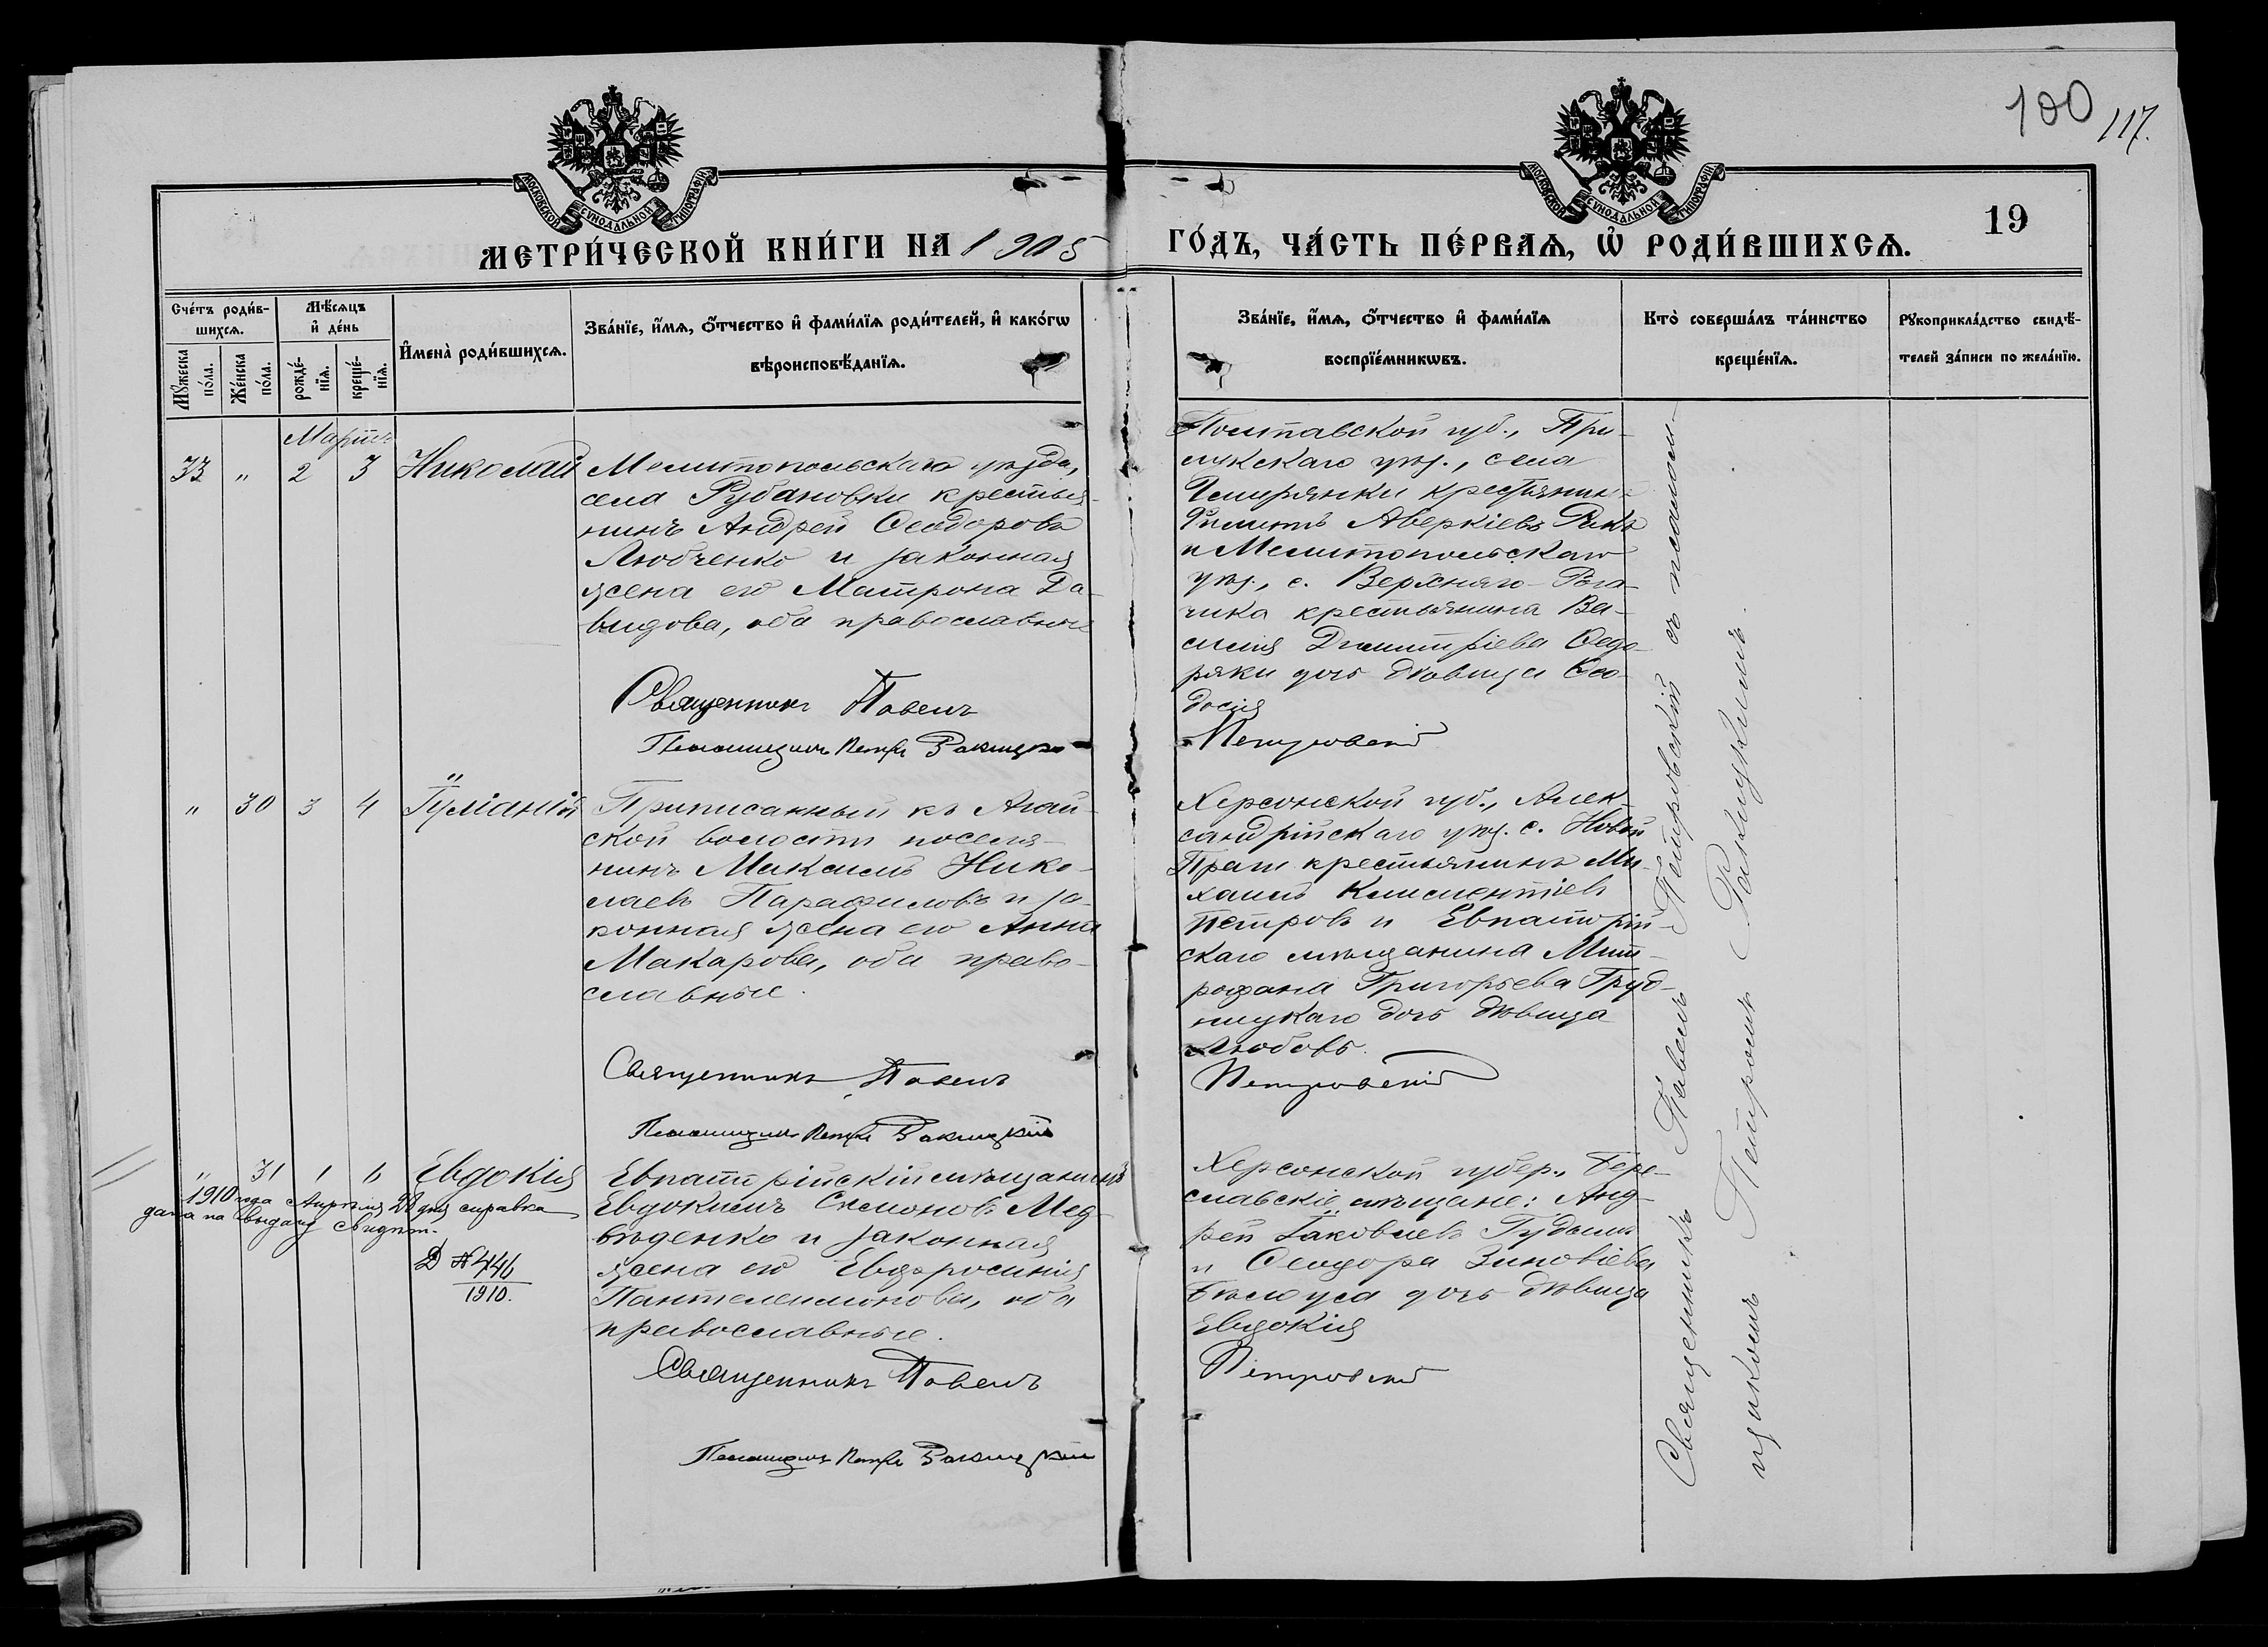 100 117.
МОСКОВСКОЙ СУНОДАЛЬНОЙ ТИПОГРАФІИ
МОСКОВСКОЙ СУНОДАЛЬНОЙ ТИПОГРАФІИ
19
МЕТРИ́ЧЕСКОЙ КНИ́ГИ НА 1905
ГО́ДЪ, ЧА́СТЬ ПЕ́РВАѦ, Ѡ҆ РОДИ́ВШИХСѦ.
Сче́тъ роди́в-
шихсѧ.
Мꙋ́жеска по́ла.
Же́нска по́ла.
Мѣ́сѧцъ
и҆ де́нь
рожде́-
нїѧ.
креще́-
нїѧ.
И҆мена̀ роди́вшихсѧ.
Зва́нїе, и҆́мѧ, ѻ҆́тчество и҆ фами́лїѧ роди́телей, и҆ како́гѡ
вѣроисповѣ́данїѧ.
Зва́нїе, и҆́мѧ, ѻ҆́тчество и҆ фами́лїѧ
воспрїе́мникѡвъ.
Кто̀ соверша́лъ та́инство
креще́нїѧ.
Рꙋкоприкла́дство свидѣ́-
телей за́писи по жела́нїю.
Мартъ
33 " 2 3 Николай
Мелитопольскаго уѣзда,
села Рубановки крестья-
нинъ Андрей Ѳеодоровъ
Любченко и законная
жена его Матрона Да-
видова, оба православные
Священникъ Павелъ
Псаломщикъ Петръ Ракицкій
Полтавской губ., При-
лукскаго уѣз., села
крестьянинъ
Филиппъ Аверкіевъ
и Мелитопольскаго
уѣз., с. Верхняго-Рога-
чика крестьянина Ва-
силія Димитріева Ѳедо-
ряки дочь дѣвица Ѳео-
досія
Петровскій
" 30 3 4 Іуліанія
Приписанный къ Агай-
ской волости поселя-
нинъ Максимъ Нико-
лаевъ Парафиловъ и за-
конная жена его Анна
Макарова, оба право-
славные.
Священникъ Павелъ
Псаломщикъ Петръ Ракицкій
Херсонской губ., Алек-
сандрійскаго уѣз. с. Новой
Праги крестьянинъ Ми-
хаилъ Климентіевъ
Петровъ и Евпаторій-
скаго мѣщанина Мит-
рофана Григорьева Груд-
ницкаго дочь дѣвица
Любовь.
Петровскій
" 31 1 6 Евдокія
1910 года Апрѣля 28 дня справка
дана на выдачу свидѣт.
Д №446
1910.
Евпаторійскій мѣщанинъ
Евдокимъ Симоновъ Мед-
вѣденко и законная
жена его Евфросинія
Пантелеимонова, оба
православные.
Священникъ Павелъ
Псаломщикъ Петръ Ракицкій
Херсонской губер., Бере-
славскіе мѣщане: Анд-
рей Іаковлевъ
и Ѳеодора Зиновіева
Бѣлоуса дочь дѣвица
Евдокія
Петровскій
Священникъ Павелъ Петровскій съ псалом-
щикомъ Петромъ Ракицкимъ.